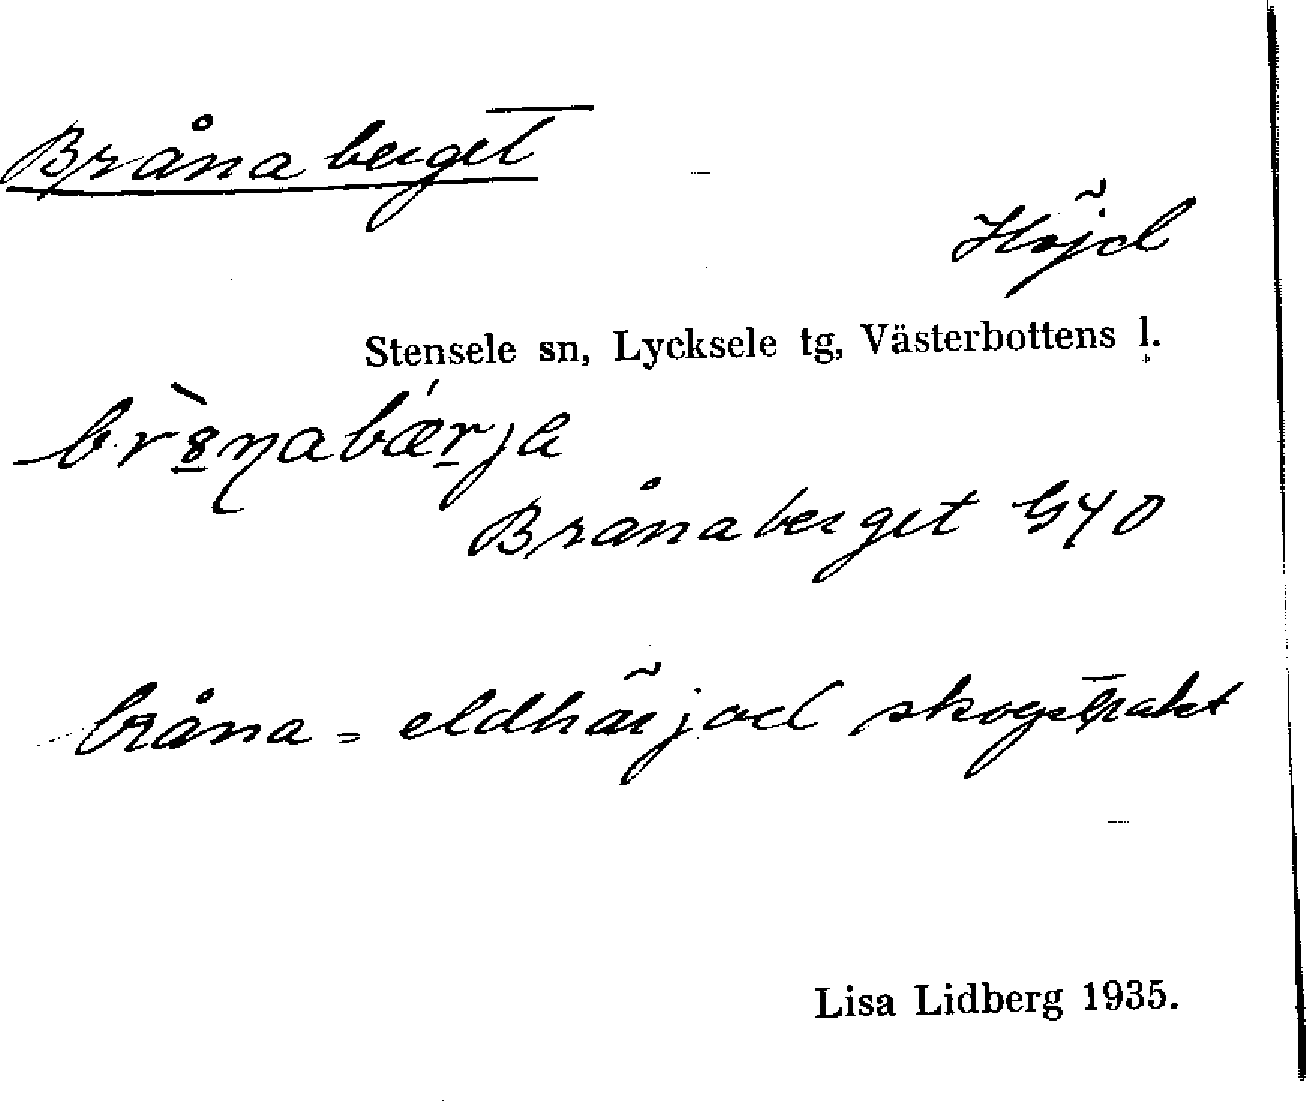 Brånaberget
Höjd
Stensele sn, Lycksele tg, Västerbottens l.
Brånaberget GYO
bråna = eldhärjad skogstrakt
Lisa Lidberg 1935.